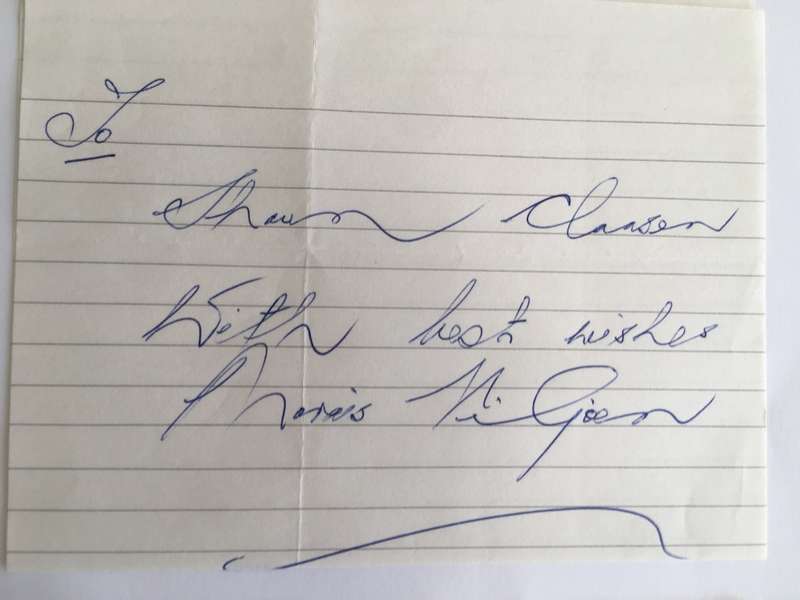 To
Shaun Claasen
With best wishes
Marais Viljoen